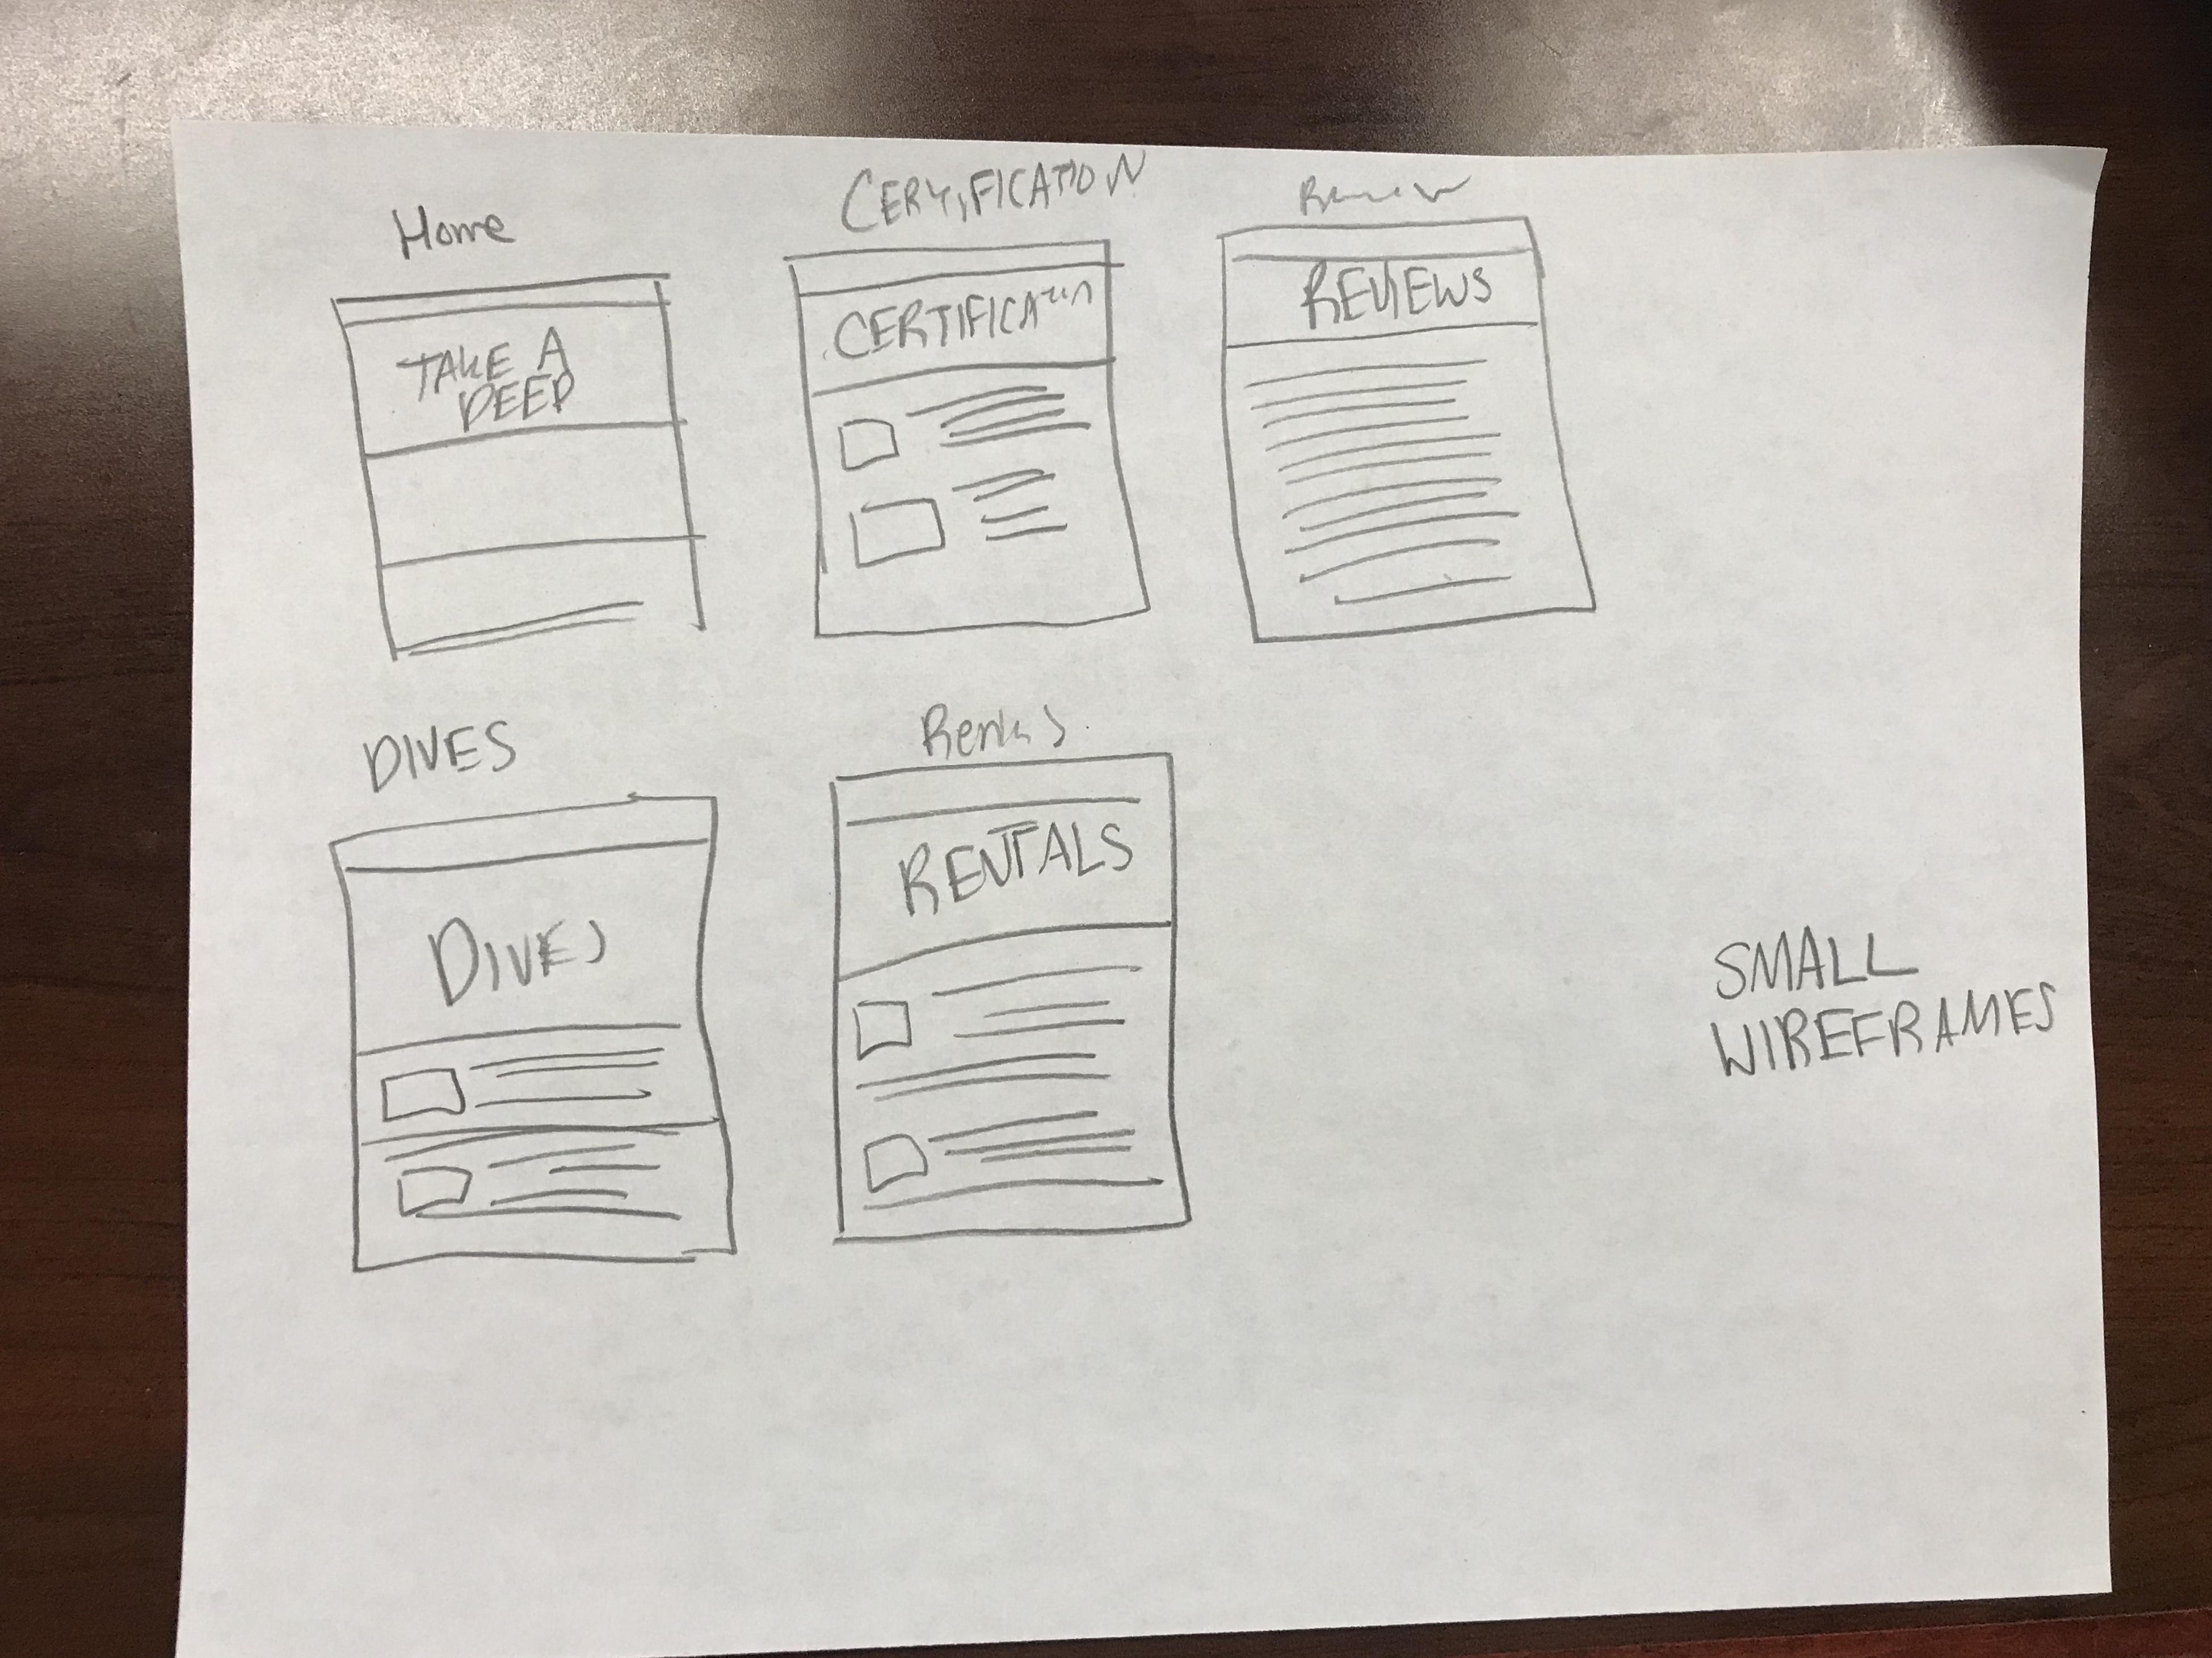 Home
TAKE A
DEEP
CERTIFICATION
CERTIFICATION
Review
REVIEWS
DIVES
DIVES
Rentals
RENTALS
SMALL
WIREFRAMES